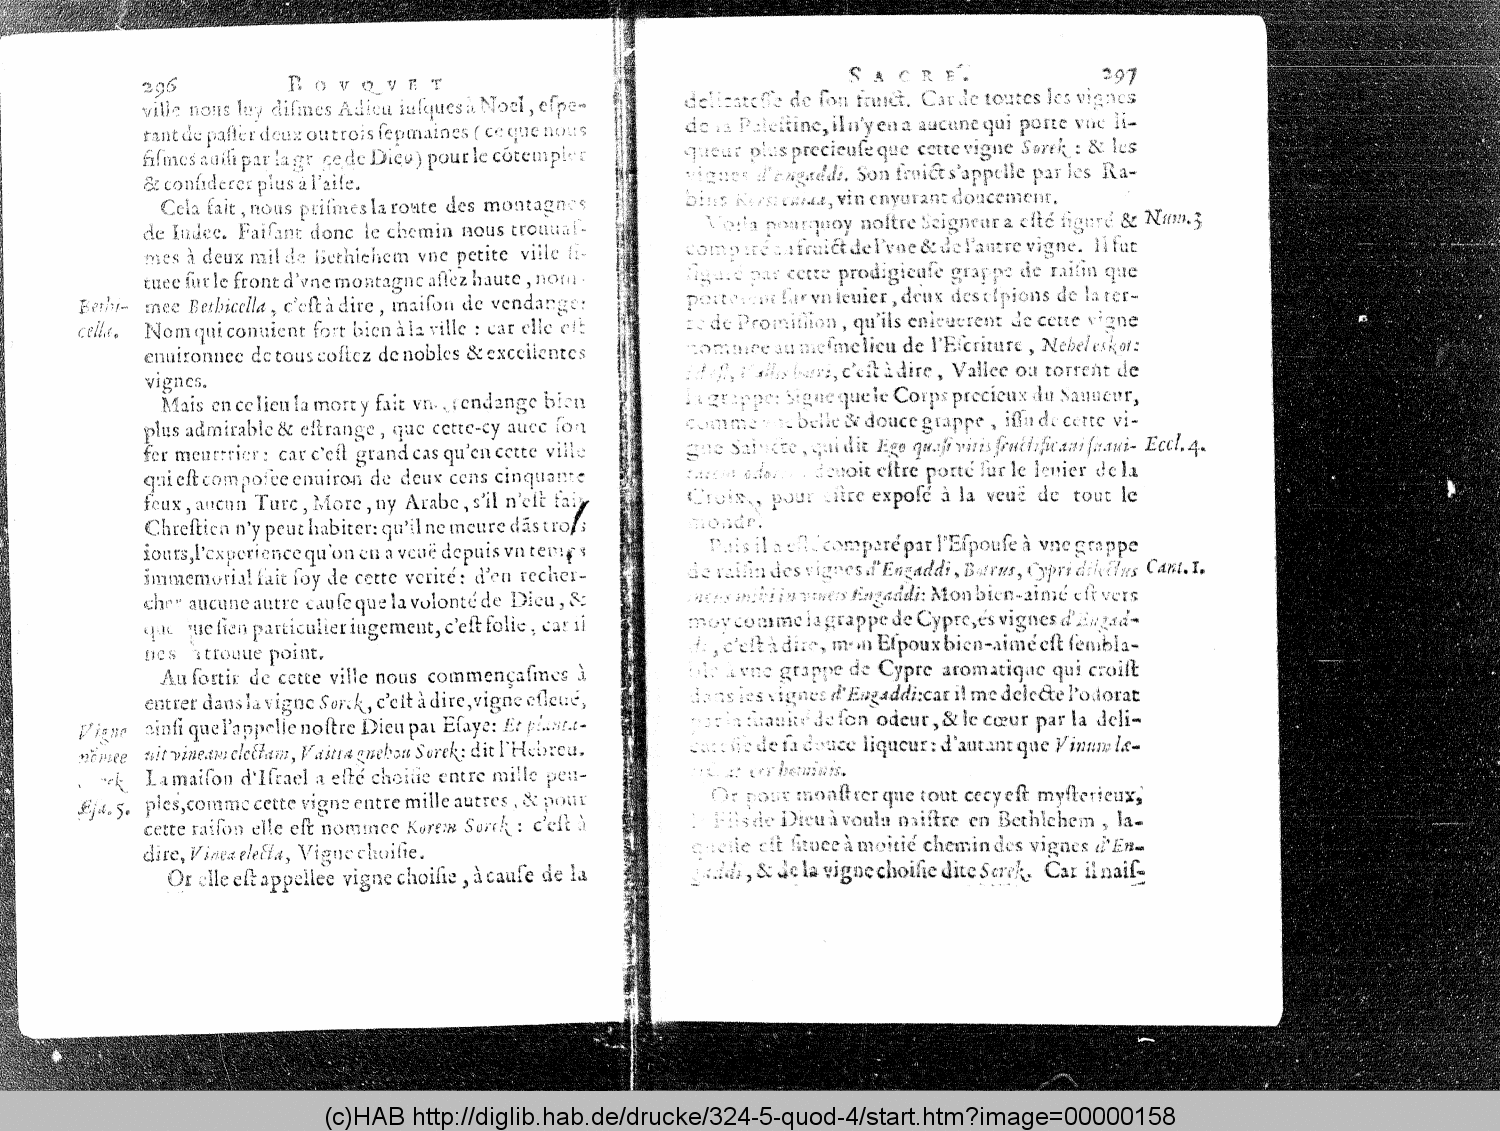 296 BOVQVET
ville nous luy diſmes Adieu iuſques à Noel, eſpe-
rant de paſſer deux ou trois ſepmaines (ce que nous
fiſmes auſſi par la gr ce de Dieu) pour le cõtempler
& conſiderer plus à l'aiſe.
Cela fait, nous priſmes la route des montagnes
de Iudee. Faiſant donc le chemin nous trouuaſ-
mes à deux mil de Bethlehem vne petite ville ſi-
tuee ſur le front d'vne montagne aſſez haute, nom-
Bethi-
cella.
mee Bethicella, c'eſt à dire, maiſon de vendange:
Nom qui conuient fort bien à la ville : car elle eſt
enuironnee de tous coſtez de nobles & excellentes
vignes.
Mais en ce lieu la mort y fait vn vendange bien
plus admirable & eſtrange, que cette-cy auec ſon
fer meurtrier: car c'eſt grand cas qu'en cette ville
qui eſt compoſee enuiron de deux cens cinquante
feux, aucun Turc, More, ny Arabe, s'il n'eſt fait
Chreſtien n'y peut habiter: qu'il ne meure dãs trois
iours, l'experience qu'on en a veuë depuis vn temps
immemorial fait foy de cette verité: d'en recher-
cher aucune autre cauſe que la volonté de Dieu, &
que ſien particulier iugement, c'eſt folie, car il
trouue point.
Au ſortir de cette ville nous commençaſmes à
entrer dans la vigne Sorek, c'eſt à dire, vigne eſleuë,
Vigne
nõmee
rek
Eſa. 5.
ainſi que l'appelle noſtre Dieu par Eſaye: Et planta-
uit vineam electam, Vaiitagnehou Sorek: dit l'Hebreu.
La maiſon d'Iſrael a eſté choiſie entre mille peu-
ples, comme cette vigne entre mille autres, & pour
cette raiſon elle eſt nommee Korem Sorek: c'eſt à
dire, Vinea electa, Vigne choiſie.
Or elle eſt appellee vigne choiſie, à cauſe de la
SACRÉ. 297
delicateſſe de ſon fruict. Car de toutes les vignes
de la Paleſtine, il n'y en a aucune qui porte vne li-
queur plus precieuſe que cette vigne Sorek: & les
vignes d'Engaddi. Son fruict s'appelle par les Ra-
bins vin enyurant doucement.
Voila pourquoy noſtre Seigneur a eſté figuré & Num. 3
comparé au fruict de l'vne & de l'autre vigne. Il fut
figuré par cette prodigieuſe grappe de raiſin que
porterent ſur vn leuier, deux des eſpions de la ter-
re de Promiſſion, qu'ils enleuerent de cette vigne
nommee au meſme lieu de l'Eſcriture, Nehel eskol:
c'eſt à dire, Vallee ou torrent de
la grappe: Signe que le Corps precieux du Sauueur,
comme vne belle & douce grappe, iſſu de cette vi-
gne Saincte, qui dit Ego quaſi vitis fructificaui ſuaui- Eccl. 4.
tatem odoris, deuoit eſtre porté ſur le leuier de la
Croix, pour eſtre expoſé à la veuë de tout le
monde.
Puis il a eſté comparé par l'Eſpouſe à vne grappe
de raiſin des vignes d'Engaddi, Botrus, Cypri dilectus Cant. 1.
meus mihi in vineis Engaddi: Mon bien-aimé eſt vers
moy comme la grappe de Cypre, és vignes d'Engad-
di, c'eſt à dire, mon Eſpoux bien-aimé eſt ſembla-
ble à vne grappe de Cypre aromatique qui croiſt
dans les vignes d'Engaddi: car il me delecte l'odorat
par la ſuauité de ſon odeur, & le cœur par la deli-
cateſſe de ſa douce liqueur: d'autant que Vinum læ-
cor hominis.
Or pour monſtrer que tout cecy eſt myſterieux,
le Fils de Dieu à voulu naiſtre en Bethlehem, la-
quelle eſt ſituee à moitié chemin des vignes d'En-
gaddi, & de la vigne choiſie dite Sorek. Car il naiſ-
(c)HAB http://diglib.hab.de/drucke/324-5-quod-4/start.htm?image=00000158